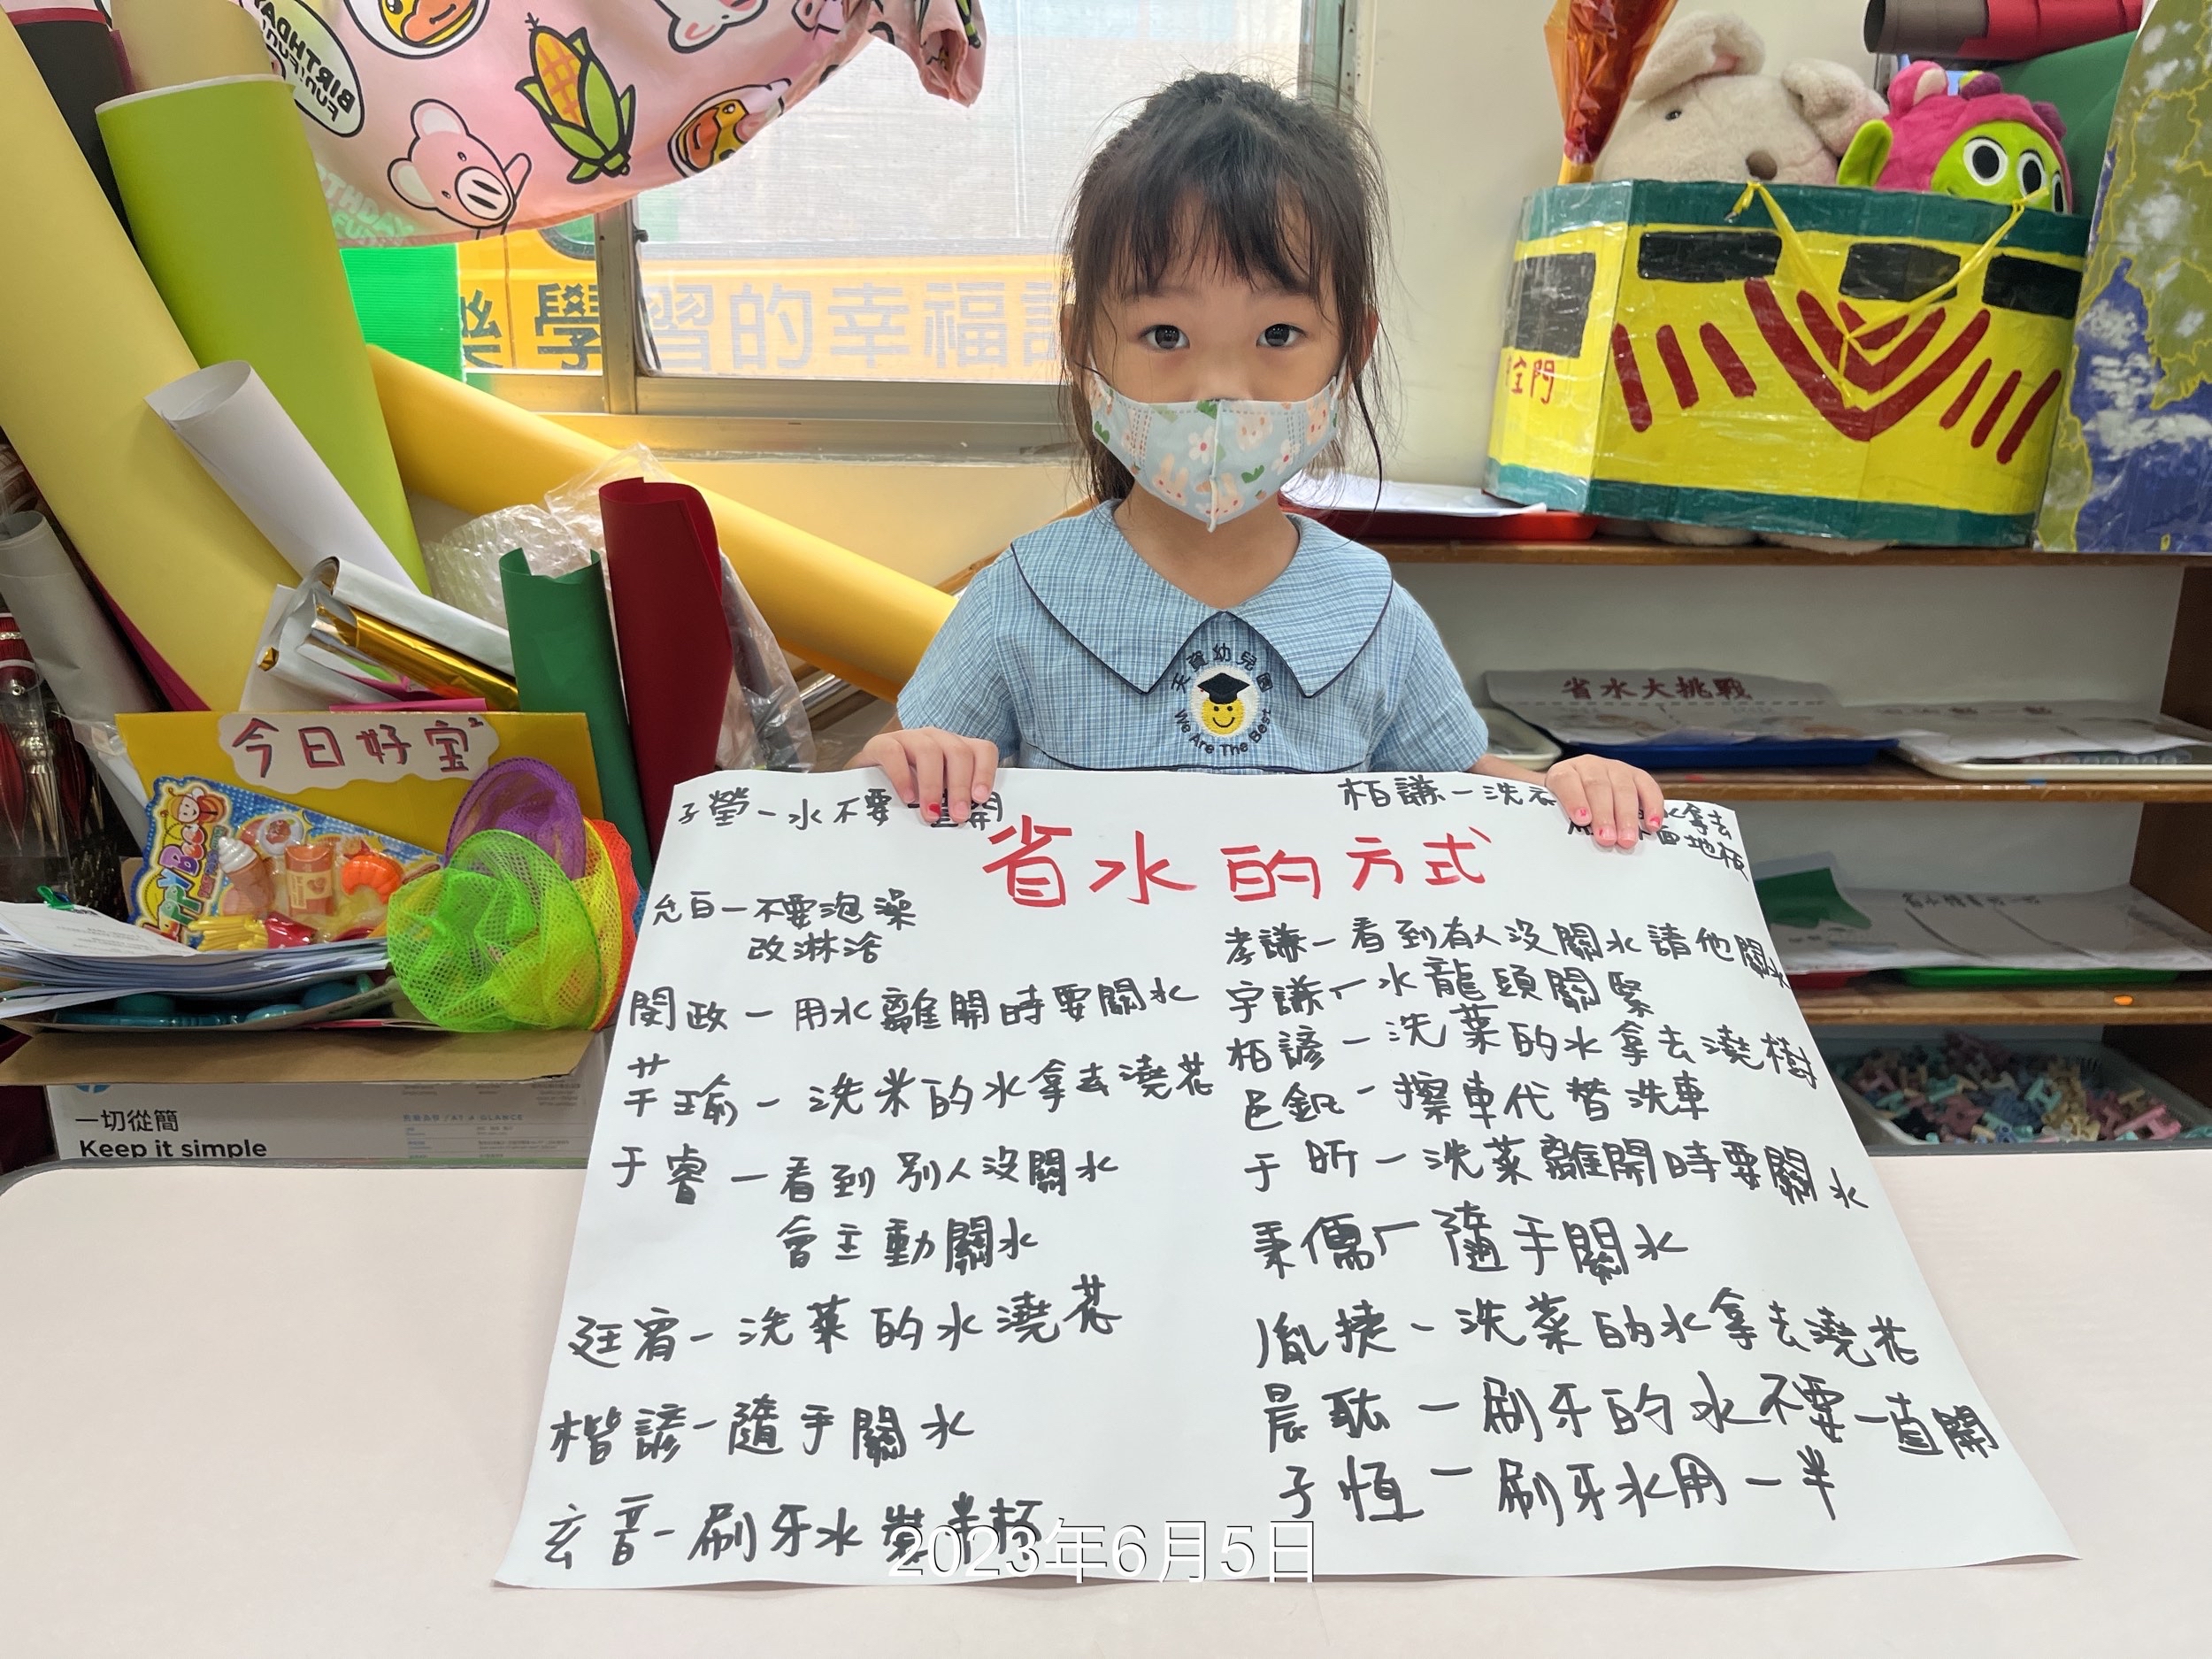 BIRTHDAY
樂學習的幸福
全門
天資幼兒園
We Are The Best
省水大挑戰
今日好宝
一切從簡
Keep it simple
子瑩一水不要一直開
柏謙一洗
水拿去
省水的方式
允白一不要泡澡
改淋浴
閔政一用水離開時要關水
芊瑜一洗米的水拿去澆花
于睿一看到別人沒關水
會主動關水
廷宥一洗菜的水澆花
楷諺一隨手關水
玄音一刷牙水裝半杯
孝謙一看到有人沒關水請他關水
宇謙一水龍頭關緊
柏諺一洗菜的水拿去澆樹
邑一擦車代替洗車
于昕一洗菜離開時要關水
秉儒一隨手關水
胤捷一洗菜的水拿去澆花
晨一刷牙的水不要一直開
子恆一刷牙水用一半
2023年6月5日